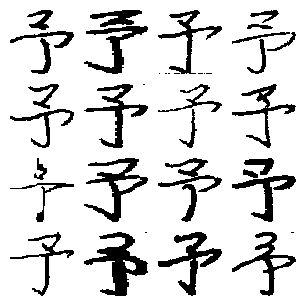 予予予予
予予予予
予予予予
予予予予